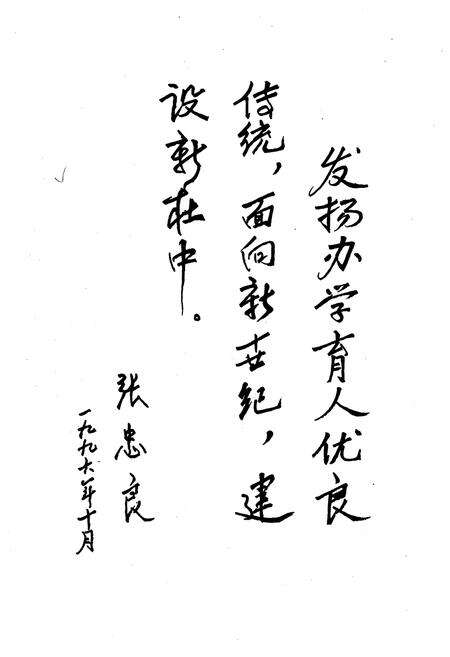 发扬办学育人优良
传统，面向新世纪，建
设新杜中。
张忠良
一九九六年十月